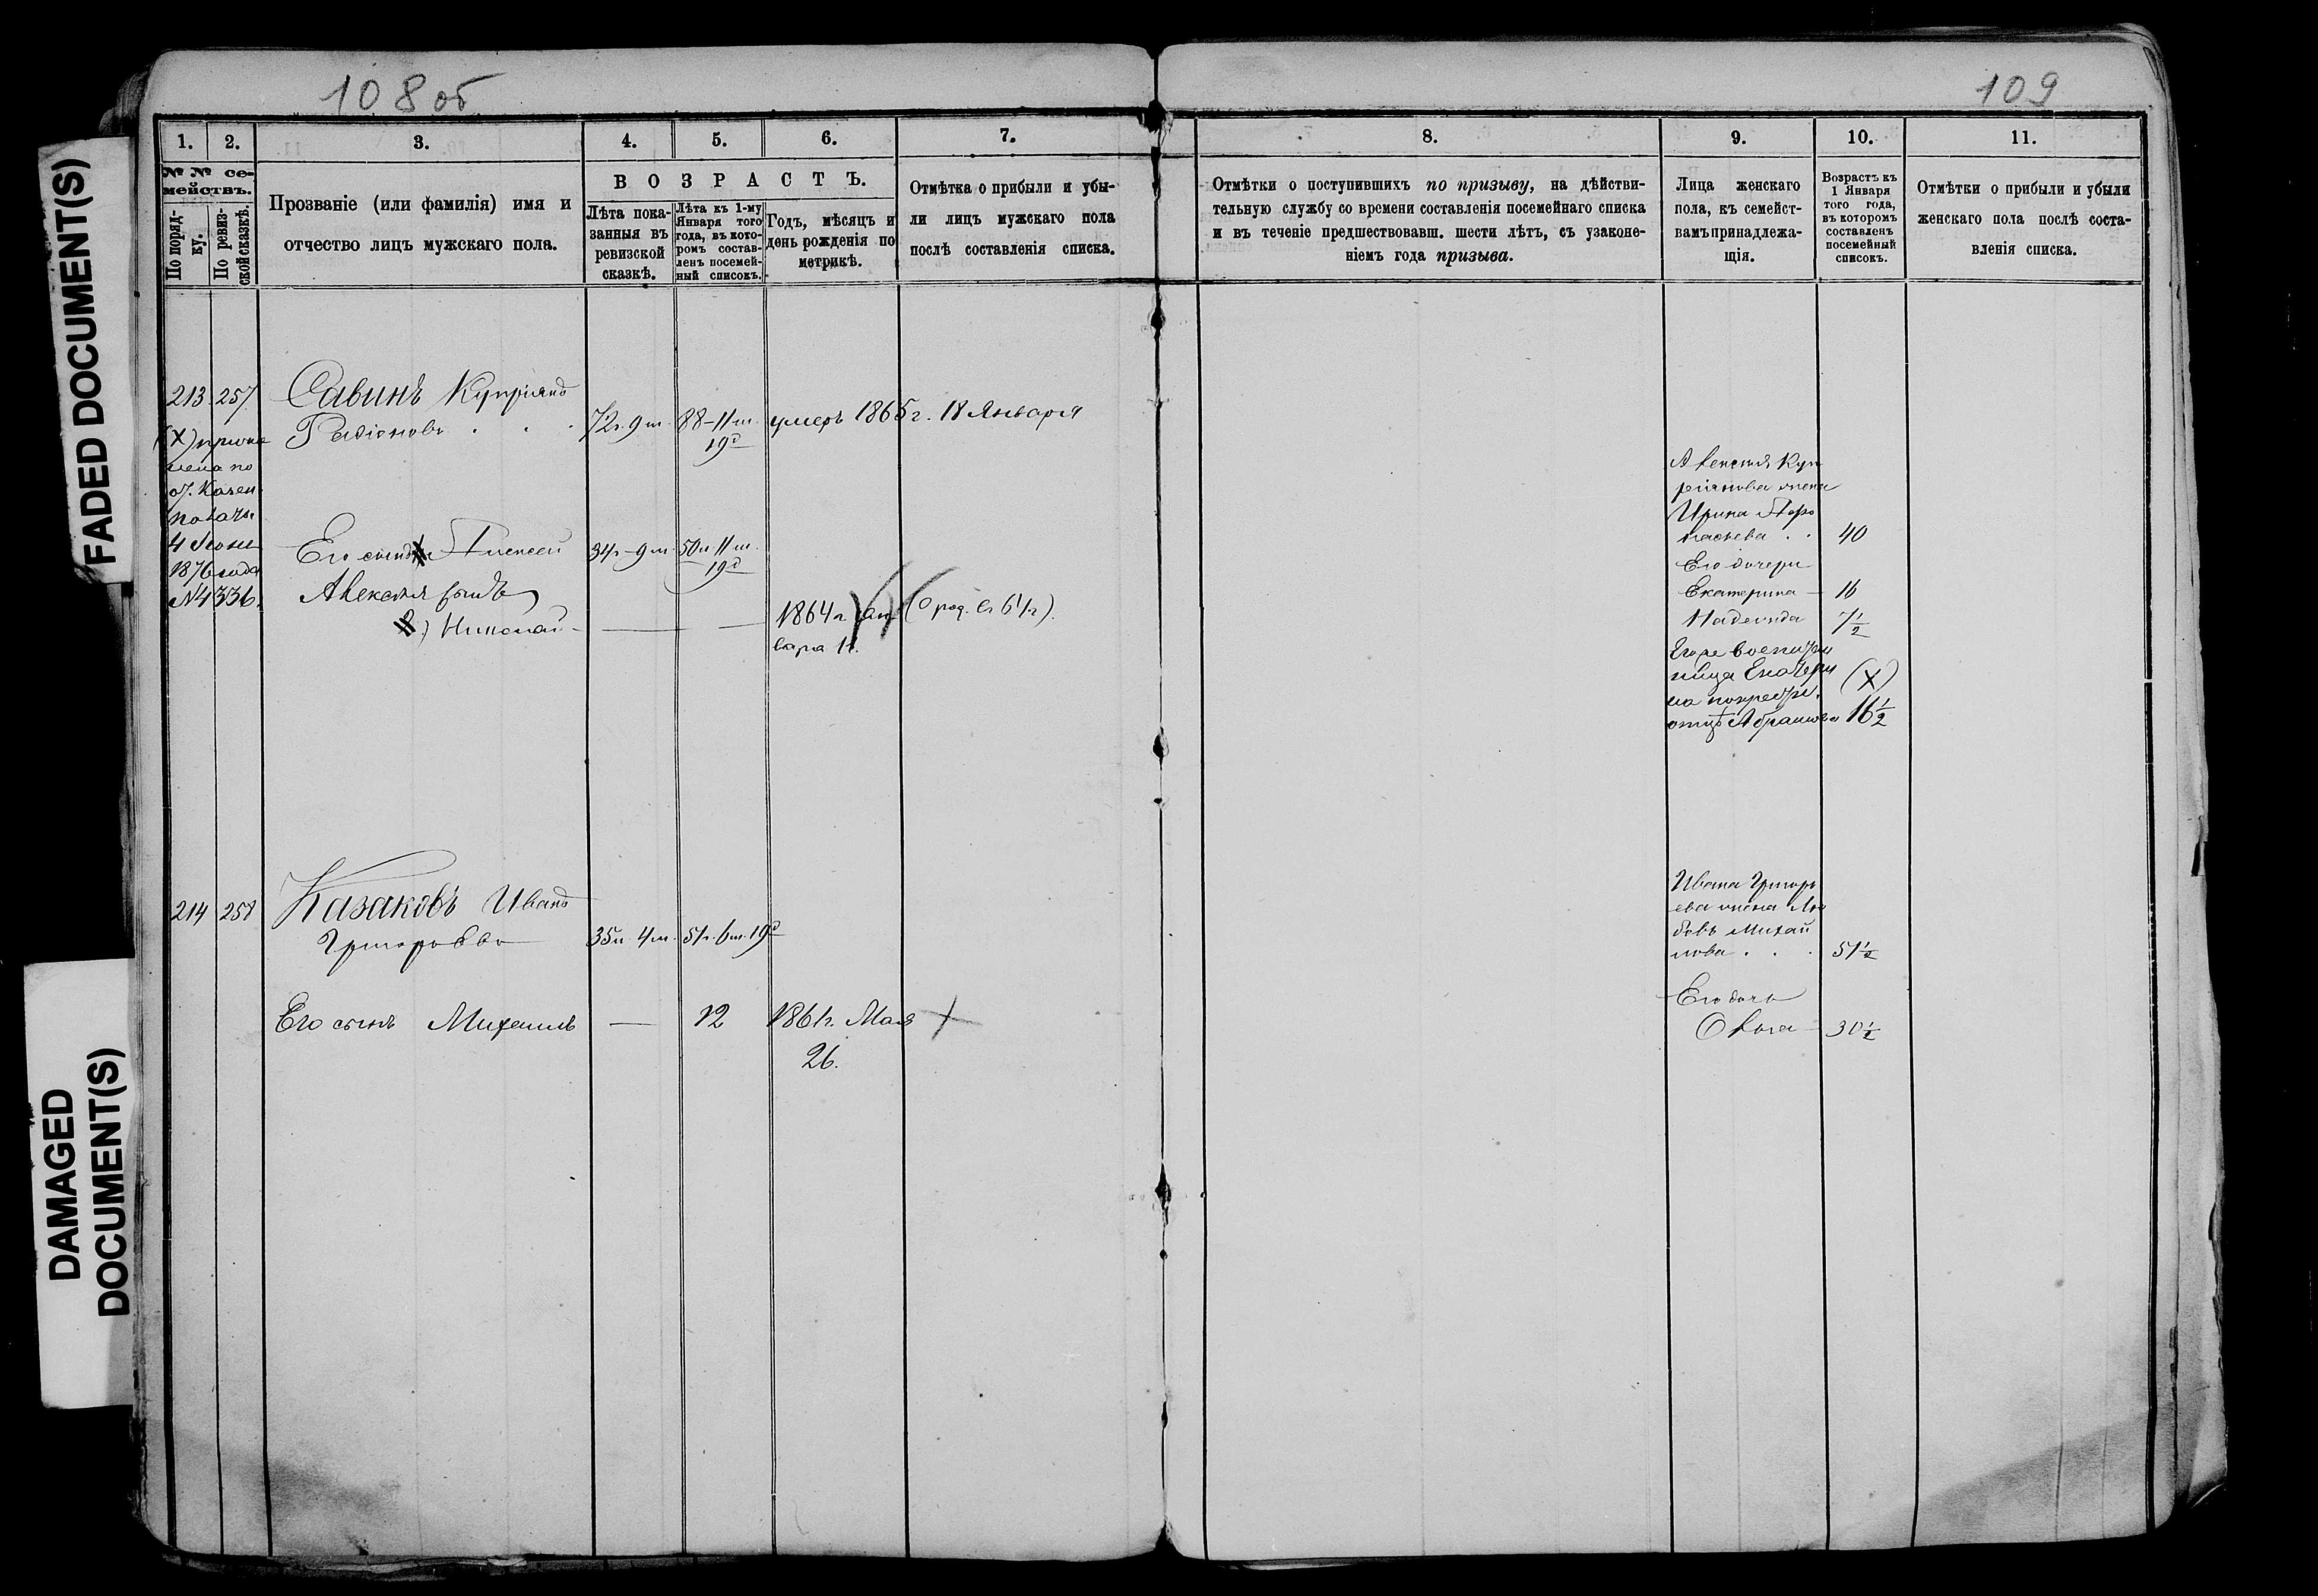 108 об
109
FADED DOCUMENT(S)
DAMAGED
DOCUMENT(S)
1.
2.
3.
4.
5.
6.
7.
№ № се-
мействъ.
По поряд-
ку.
По ревиз-
ской сказкѣ.
Прозваніе (или фамилія) имя и
отчество лицъ мужскаго пола.
ВОЗРАСТЪ.
Лѣта пока-
занныя въ
ревизской
сказкѣ.
Лѣта къ 1-му
Января того
года, въ кото-
ромъ состав-
ленъ посемей-
ный списокъ.
Годъ, мѣсяцъ и
день рожденія по
метрикѣ.
Отмѣтка о прибыли и убы-
ли лицъ мужскаго пола
послѣ составленія списка.
213 257
Савинъ Купріянъ
Радіоновъ
72 г. 9 м.
88-11 м.
19 д
умеръ 1865 г. 18 Января
(X)
4
1876 года
№ 4336.
Его сынъ Алексей
34 г-9 м.
50 л 11 м.
19 д
Алексея сынъ
Николай
1864 г. Ян
варя 11.
(О род. въ 64 г).
214 258
Казаковъ Иванъ
Григорьевъ
35 л 4 м.
51 г. 6 м. 19 д
Его сынъ Михаилъ — 12 1861 г. Мая X
26.
8.
9.
10.
11.
Отмѣтки о поступившихъ по призыву, на дѣйстви-
тельную службу со времени составленія посемейнаго списка
и въ теченіе предшествовавш. шести лѣтъ, съ узаконе-
ніемъ года призыва.
Лица женскаго
пола, къ семейст-
вамъ принадлежа-
щія.
Возрастъ къ
1 Января
того года,
въ которомъ
составленъ
посемейный
списокъ.
Отмѣтки о прибыли и убыли
женскаго пола послѣ соста-
вленія списка.
Алексея Куп
реянова жена
Ирина
40
Его дочери
Екатерина — 16
Надежда 7 1/2
воспитан
ница Екатери (X)
на
Абрамова 16 1/2
Ивана Григорь
ева жена Лю
бовь Михай
лова . . . 51 1/2
Его дочь
Ольга — 30 1/2